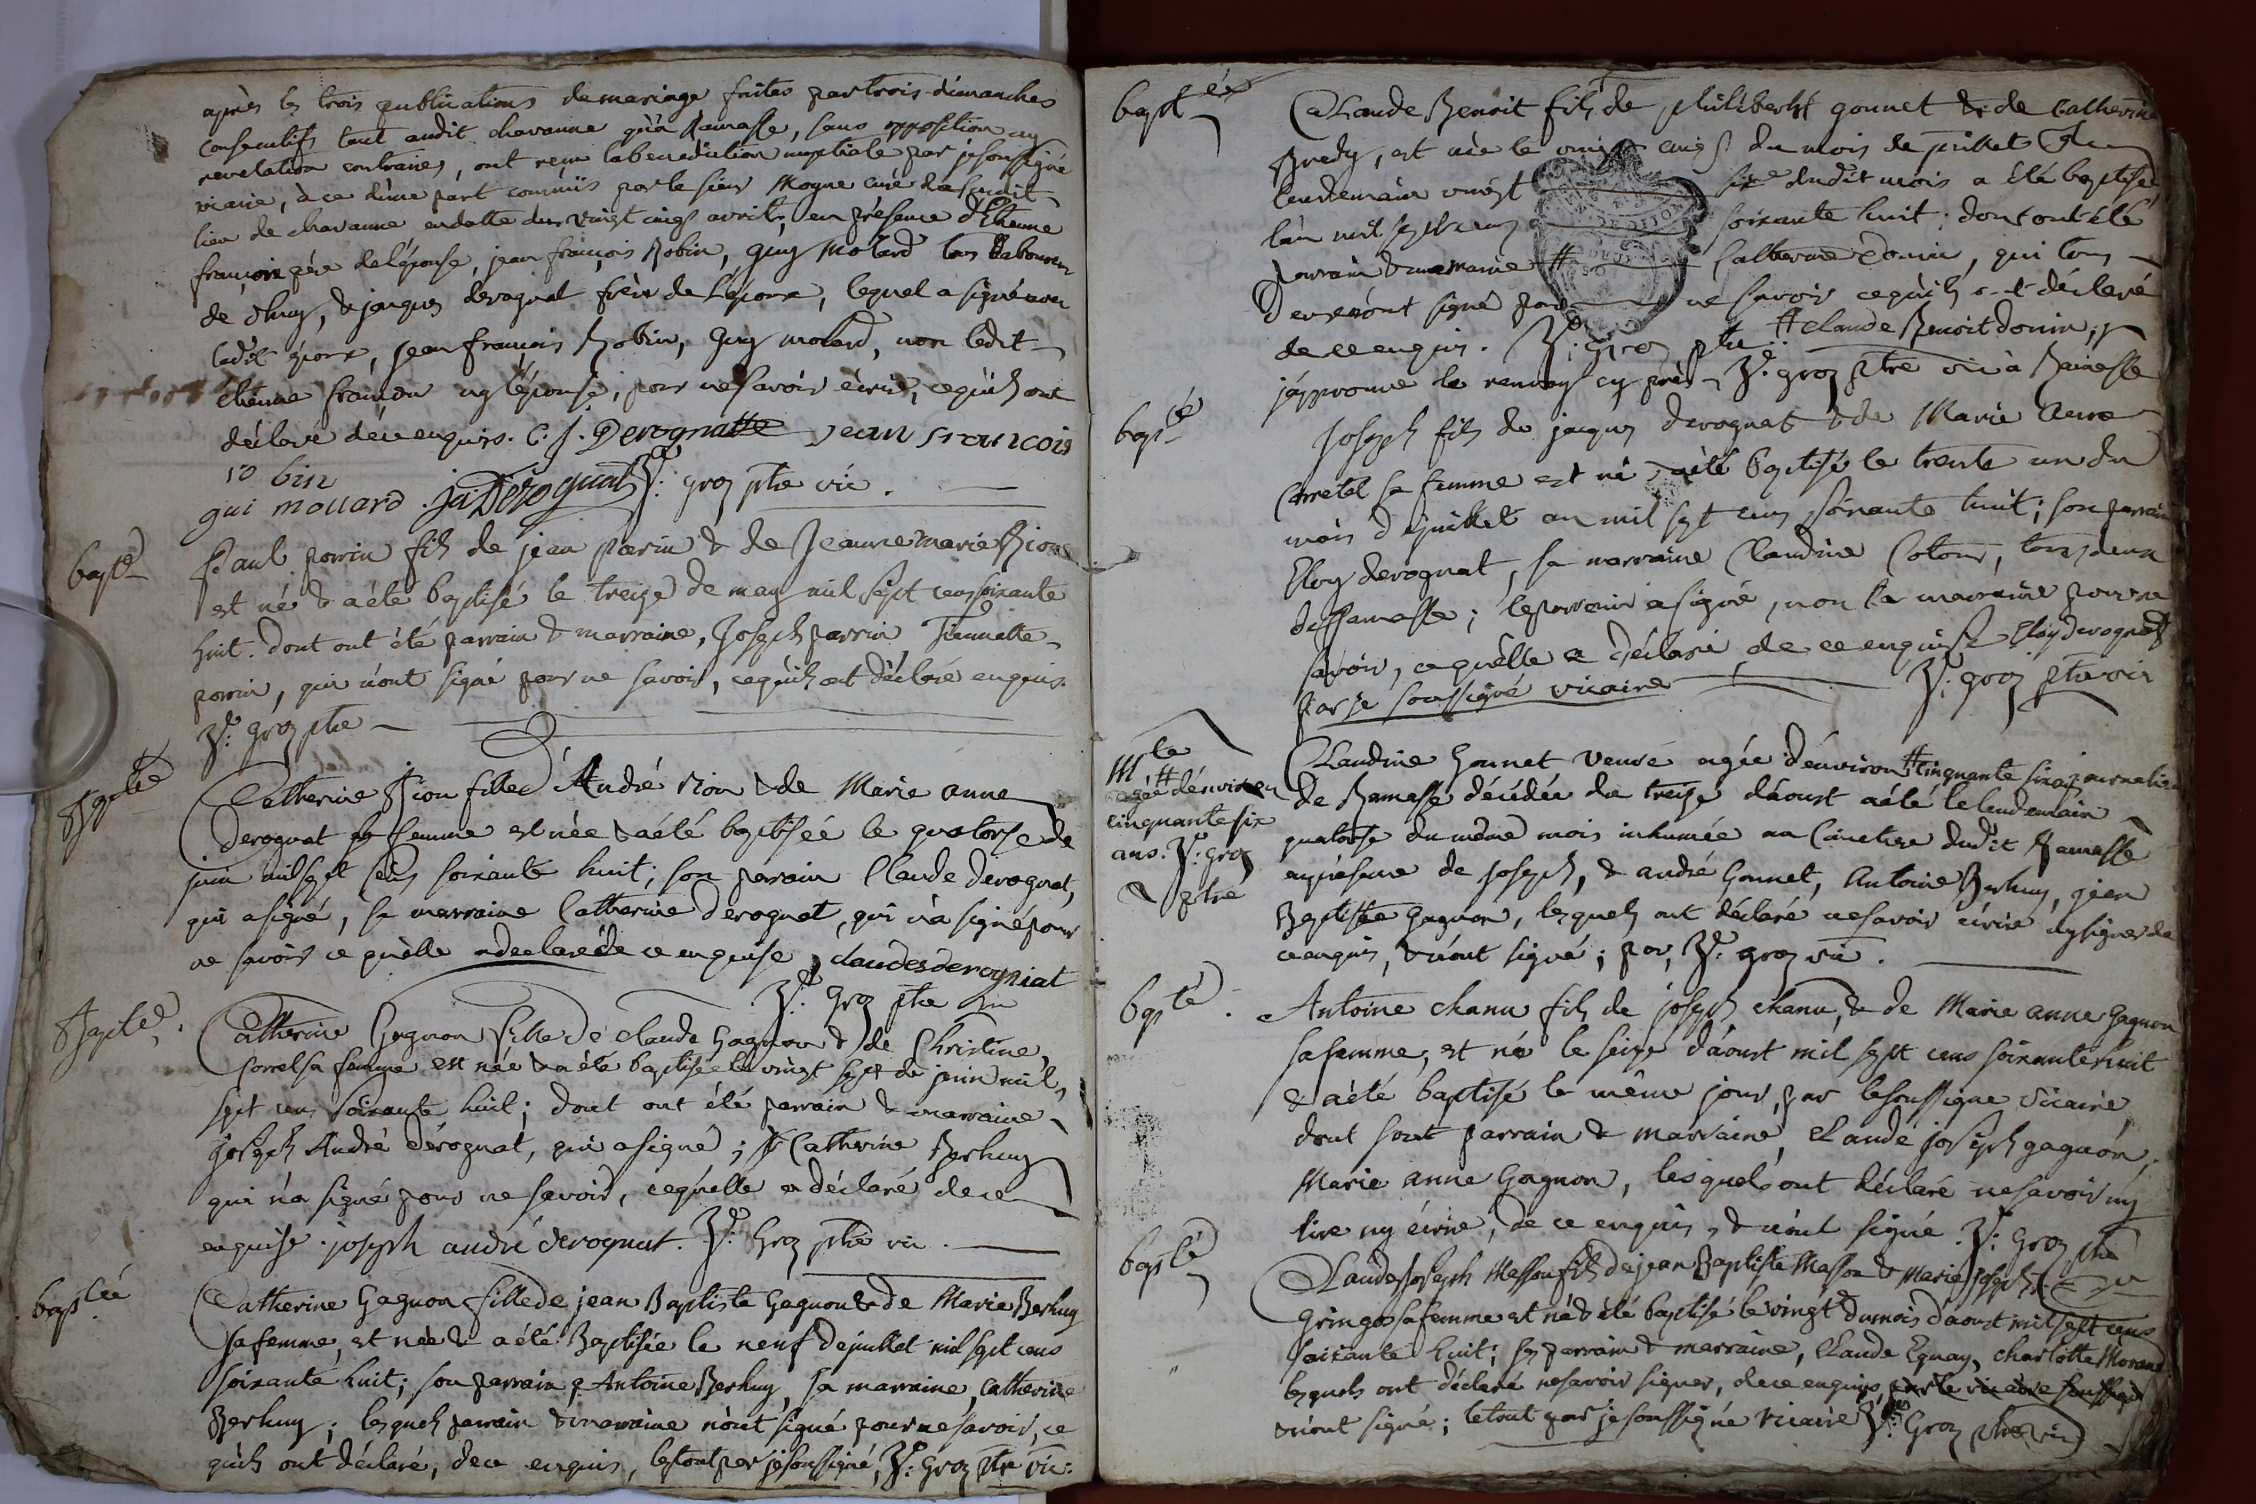 après les trois publications de mariage faites par trois dimanches
consecutifs tant audit chavanne qu'à Ramasse, sans opposition ny
revelation contraires, ont reçu la benediction nuptiale par je soussigné
vicaire, à ce d'une part commis par le sieur Moyne curé dudit
lieu de chavanne en datte du vingt cinq avril, en présence d'Etienne
françon père de l'épouse, jean françois Robin, guy Molard tous laboureurs
de , & jacques derognat frère de l'époux, lequel a signé avec
ledit époux, jean françois Robin, guy molard, non ledit
étienne françon ny l'épouse, pour ne savoir écrire, ce qu'ils ont
déclaré de ce enquis. C. J. Derognatte jean francois
ro bin
gui mollard . ja Derognat J: groz ptre vic .
bapt.
Paul perrin fils de jean perin & de Jeanne marie Rion
est né & a été baptisé le treize de may mil sept cens soixante
huit. dont ont été parrain & marraine, Joseph perrin Pierrette
perrin, qui n'ont signé pour ne savoir, ce qu'ils ont déclaré enquis.
J: groz ptre
Bapte
Catherine Rion fille d'André rion & de Marie anne
derognat sa femme est née & a été baptisée le quatorse de
juin mil sept cens soixante huit ; son parrain Claude derognat,
qui a signé, sa marraine Catherine derognat, qui n'a signé pour
ne savoir ce qu'elle a declaré de ce enquise, claudes derogniat
J: groz ptre vic
Baptée.
Catherine Gagnon fille de claude Gagnon & de Christine
sorrel sa femme est née & a été baptisée le vingt sept de juin mil
sept cens soixante huit ; dont ont été parrain & marraine
joseph André dérognat, qui a signé ; & Catherine Berhuy
qui n'a signé pour ne savoir, ce qu'elle a déclaré de ce
enquise . joseph andré derognat. J: Groz ptre vic .
baptée
Catherine Gagnon fille de jean Baptiste Gagnon & de Marie Berhuy
sa femme, est née & a été Baptisée le neuf de juillet mil sept cens
soixante huit ; son parrain, Antoine Berhuy, sa marraine, catherine
Berhuy ; lesquels parrain & marraine n'ont signé pour ne savoir, ce
qu'ils ont déclaré, de ce enquis, le tout par je soussigné, J: Groz ptre vic.
bapt
Claude Benoit fils de philibert gonnet & de Catherine
Bredy, est né le vingt cinq du mois de juillet & le
lendemain vingt six dudit mois a été baptisé
l'an mil sept cens soixante huit ; dont ont été
parrain & marraine # Catherine donin, qui tous
deux n'ont signé pour ne savoir ce qu'ils ont déclaré
de ce enquis. J: groz ptre # claude Benoit donin, &
j'approuve le renvoy cy près J: groz ptre vic à Ramasse
bapté
Joseph fils de jacques derognat & de Marie
Carretel sa femme est né & a été baptisé le trente un du
mois de juillet an mil sept cens soixante huit ; son parrain
Eloy derognat, sa marraine Claudine Coton, tous deux
de Ramasse ; le parrain a signé, non la marraine pour ne
savoir, ce qu'elle a déclaré de ce enquise Eloy Derognat
par je soussigné vicaire J: groz ptre vic
Mte
# agée d'environ
cinquante six
ans. J: groz
ptre
Claudine Gonnet veuve agée d'environ # cinquante six
de Ramasse décédée du treize d'aoust a été le lendemain
quatorse du même mois inhumée au Cimetiere dudit Ramasse
en présence de joseph, & andré Gonnet, Antoine Berhuy, jean
Baptiste Gagnon, lesquels ont déclaré ne savoir écrire ny signer de
ce enquis, & n'ont signé ; par, J: groz vic .
bapté .
Antoine chanu fils de joseph chanu, & de Marie anne Gagnon
sa femme, est né le seize d'aoust mil sept cens soixante huit
& a été baptisé le même jour, par le soussigné vicaire,
dont sont parrain & marraine, Claude joseph gagnon,
Marie anne Gagnon, lesquels ont déclaré ne savoir ny
lire ny écrire, de ce enquis, & n'ont signé. J: groz ptre
bapté
Claude joseph Masson fils de jean Baptiste Masson & Marie joseph
gringoz sa femme est né & été baptisé le vingt du mois d'aoust mil sept cens
soixante huit ; ses parrain & marraine, Claude , charlotte Morand
lesquels ont déclaré ne savoir signer, de ce enquis, par le vicaire soussigné
& n'ont signé ; le tout par je soussigné vicaire J: Groz ptre vic